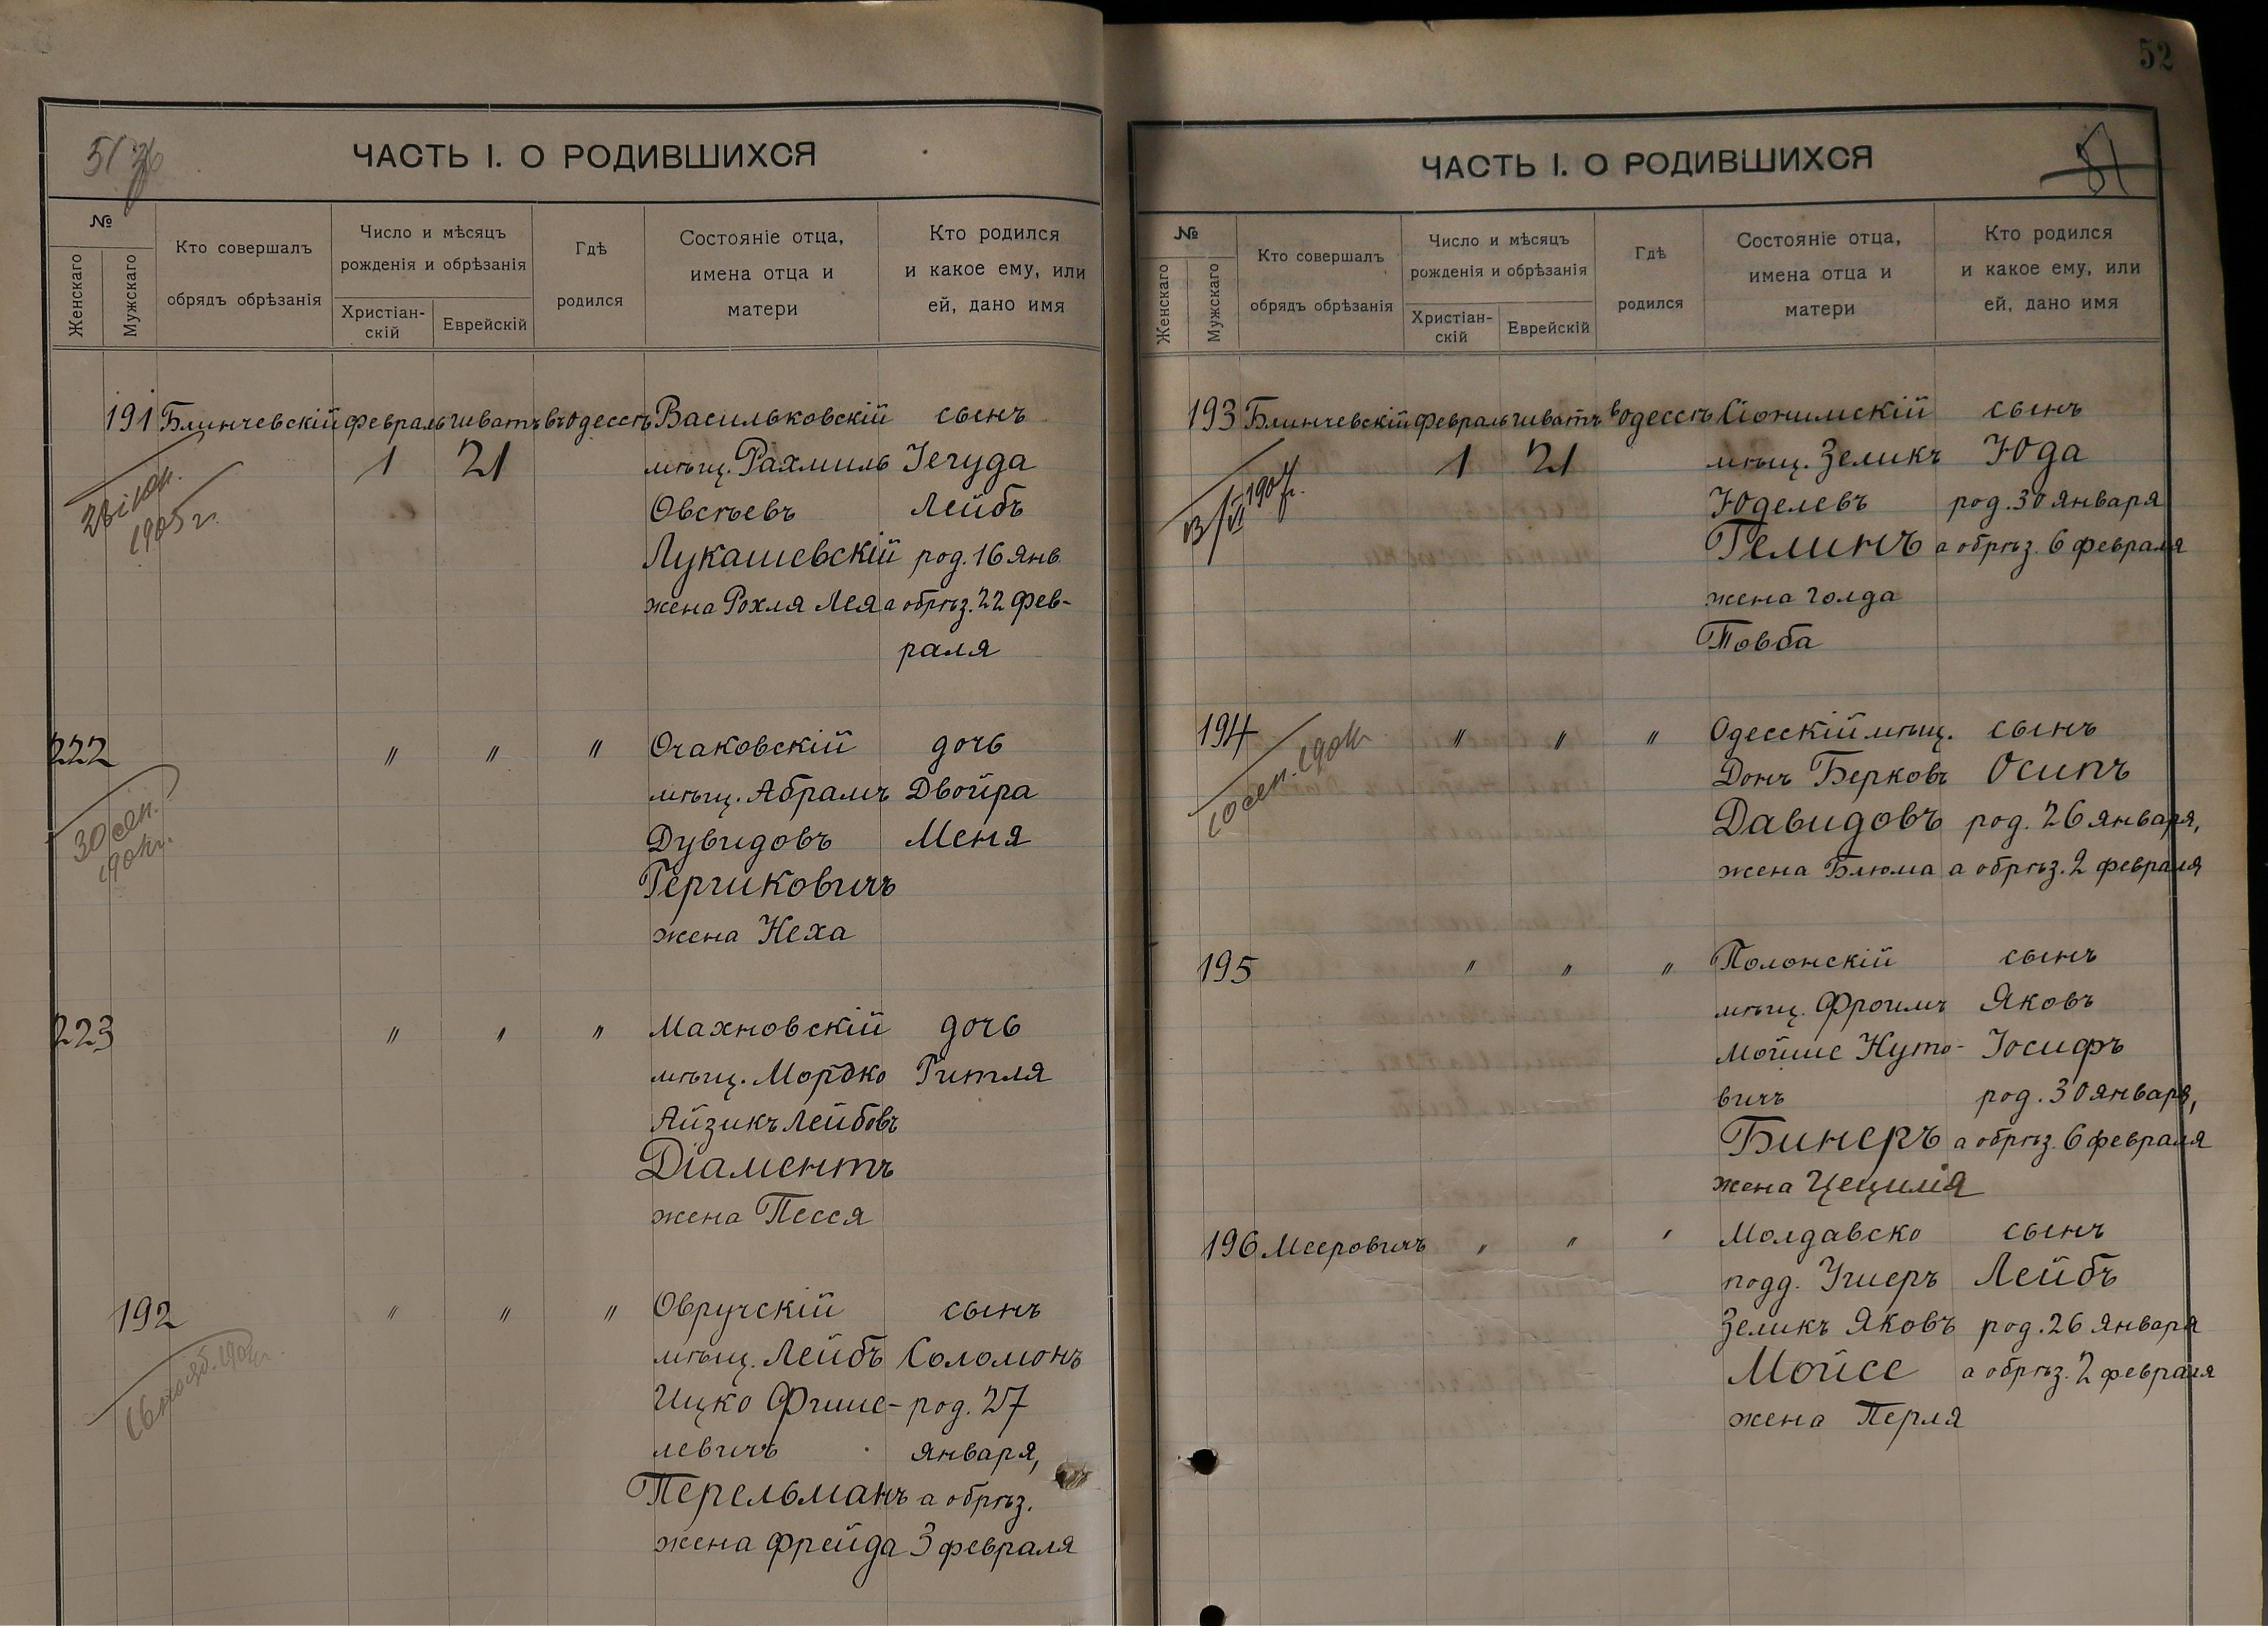 ЧАСТЬ I. О РОДИВШИХСЯ
№
Женскаго
Мужскаго
Кто совершалъ
обрядъ обрѣзанія
Число и мѣсяцъ
рожденія и обрѣзанія
Христіан-
скій
Еврейскій
Гдѣ
родился
Состояніе отца,
имена отца и
матери
Кто родился
и какое ему, или
ей, дано имя
191 Блинчевскій февраль шватъ въ Одессѣ Васильковскій сынъ
1 21 мѣщ. Рахмиль Іегуда
Овсѣевъ Лейбъ
Лукашевскій род. 16 янв.
жена Рохля Лея а обрѣз. 22 фев-
раля
28 іюн.
1905 г.
222 " " " Очаковскій дочь
мѣщ. Абрамъ Двойра
Дувидовъ Меня
Герчиковичъ
жена Неха
30 сен.
223 " " " Махновскій дочь
мѣщ. Мордко Гитля
Айзикъ Лейбовъ
Діаментъ
жена Песся
192 " " " Овручскій сынъ
мѣщ. Лейбъ Соломонъ
Ицко Фише- род. 27
левичъ января,
Перельманъ а обрѣз.
жена Фрейда 3 февраля
52
ЧАСТЬ I. О РОДИВШИХСЯ
51
№
Женскаго
Мужскаго
Кто совершалъ
обрядъ обрѣзанія
Число и мѣсяцъ
рожденія и обрѣзанія
Христіан-
скій
Еврейскій
Гдѣ
родился
Состояніе отца,
имена отца и
матери
Кто родился
и какое ему, или
ей, дано имя
193 Блинчевскій февраль шватъ въ Одессѣ сынъ
1 21 мѣщ. Зеликъ Юда
Юделевъ род. 30 января
Гелинъ а обрѣз. 6 февраля
жена Голда
Товба
194 " " " Одесскій мѣщ. сынъ
Донъ Берковъ Осипъ
Давидовъ род. 26 января,
жена Блюма а обрѣз. 2 февраля
10 сен.
195 " " " Полонскій сынъ
мѣщ. Фроимъ Яковъ
Мойше Нуто- Іосифъ
вичъ род. 30 января,
Бинеръ а обрѣз. 6 февраля
жена Цецилія
196 Мееровичъ " " " Молдавско сынъ
подд. Ушеръ Лейбъ
Зеликъ Яковъ род. 26 января
Мойсе а обрѣз. 2 февраля
жена Перля